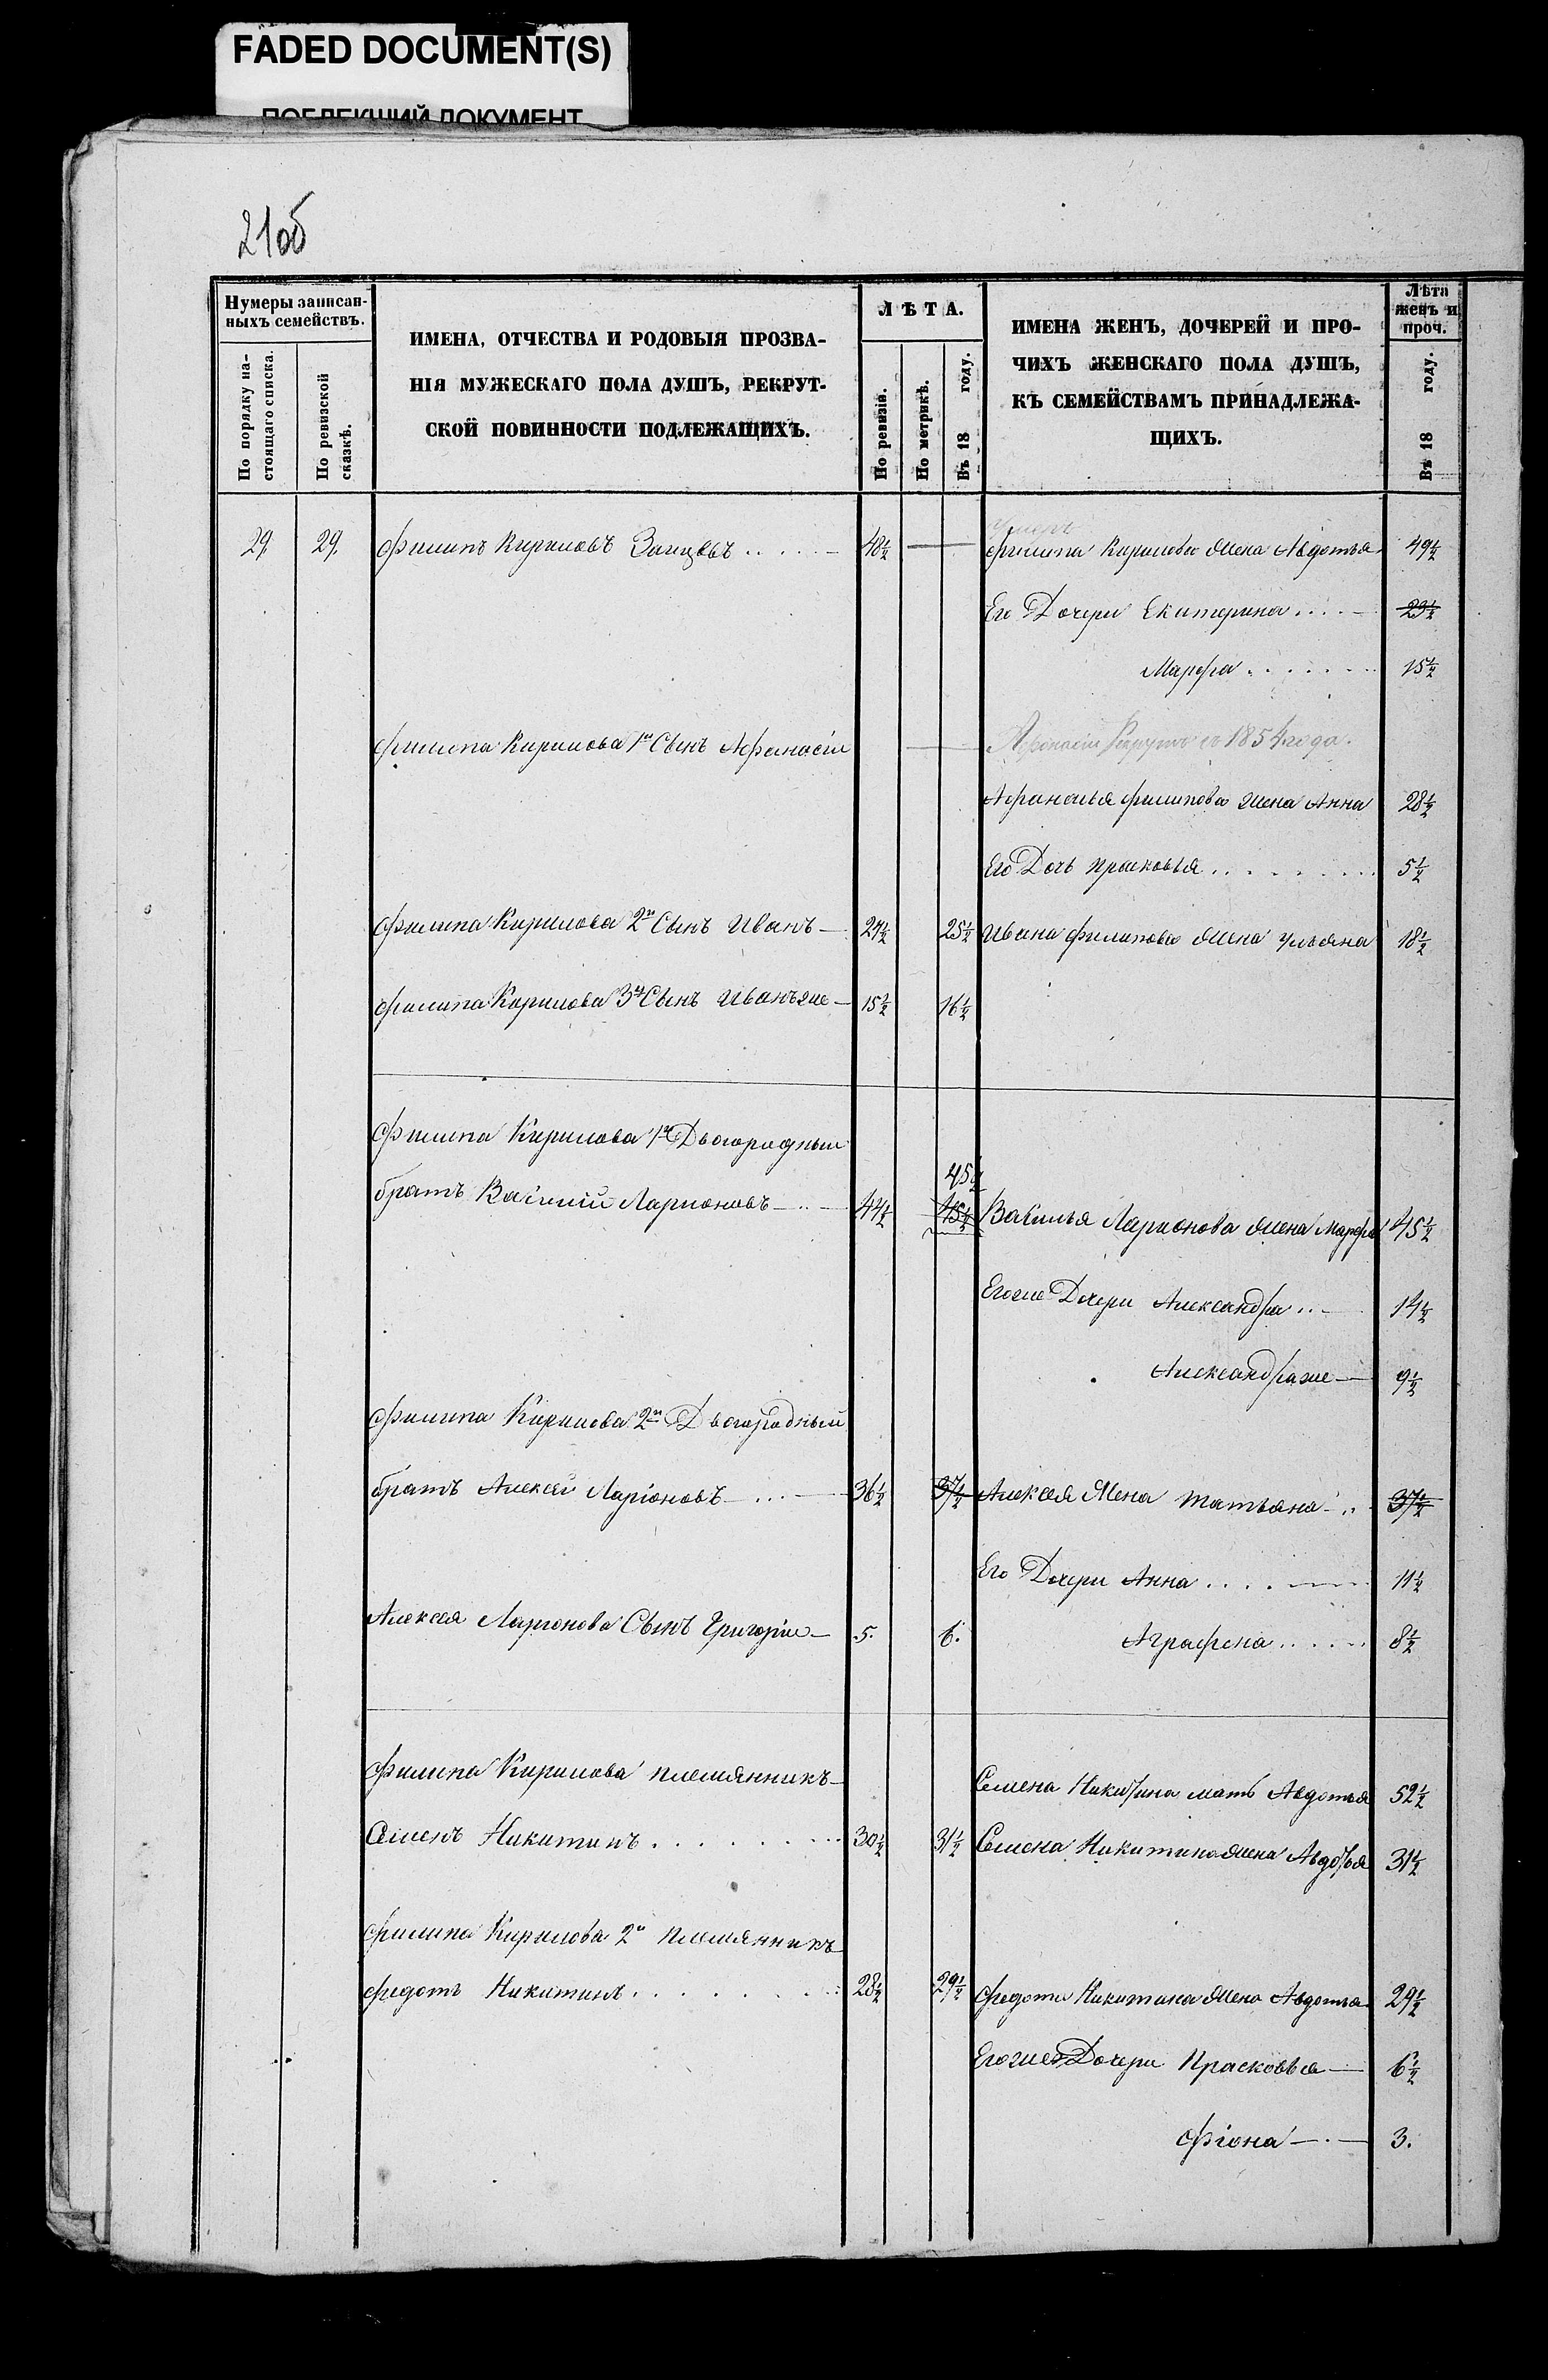 FADED DOCUMENT(S)
ПОБЛЕКШИЙ ДОКУМЕНТ
21об
Нумеры записан-
ныхъ семействъ.
По порядку на-
стоящаго списка.
По ревизской
сказкѣ.
ИМЕНА, ОТЧЕСТВА И РОДОВЫЯ ПРОЗВА-
НІЯ МУЖЕСКАГО ПОЛА ДУШЪ, РЕКРУТ-
СКОЙ ПОВИННОСТИ ПОДЛЕЖАЩИХЪ.
ЛѢТА.
По ревизіи.
По метрикѣ.
Въ 18 году.
ИМЕНА ЖЕНЪ, ДОЧЕРЕЙ И ПРО-
ЧИХЪ ЖЕНСКАГО ПОЛА ДУШЪ,
КЪ СЕМЕЙСТВАМЪ ПРИНАДЛЕЖА-
ЩИХЪ.
Лѣта
женъ и
проч.
Въ 18 году.
умеръ
29. 29. Филипъ Кириловъ Заицевъ..... 48½ — Филипа Кирилова Жена Авдотья 49½
Его Дочери Екатерина.... 23½
Марфа....... 15½
Филипа Кирилова 1й Сынъ Афанасіи — Афонасіи Рекрутъ съ 1854 года.
Афанасья Филипова жена Анна 28½
Его Дочь Прасковья......... 5½
Филипа Кирилова 2й Сынъ Иванъ — 24½ 25½ Ивана Филипова Жена Ульяна 18½
Филипа Кирилова 3й Сынъ Иванъ же — 15½ 16½
Филипа Кирилова 1й Двоюродный
45½
братъ Васи́лій Ларионовъ —..— 44½ 45½ Василья Ларионова Жена Марфа 45½
Его же Дочери Александра..— 14½
Александра же — 9½
Филипа Кирилова 2й Двоюродный
братъ Алексѣй Ларіоновъ —...— 36½ 37½ Алексея Жена Татьяна —.. 37½
Его Дочери Анна....— 11½
Алексея Ларионова Сынъ Григорие — 5. 6. Аграфена...... 8½
Филипа Кирилова племянникъ —
Семена Никитина мать Авдотья 52½
Семенъ Никитинъ......... 30½ 31½ Семена Никитина жена Авдотья 31½
Филипа Кирилова 2й племянникъ
Федотъ Никитинъ......... 28½ 29½ Федота Никитина Жена Авдотья 29½
Его же Дочери Прасковья — 6½
Фіона —.— 3.